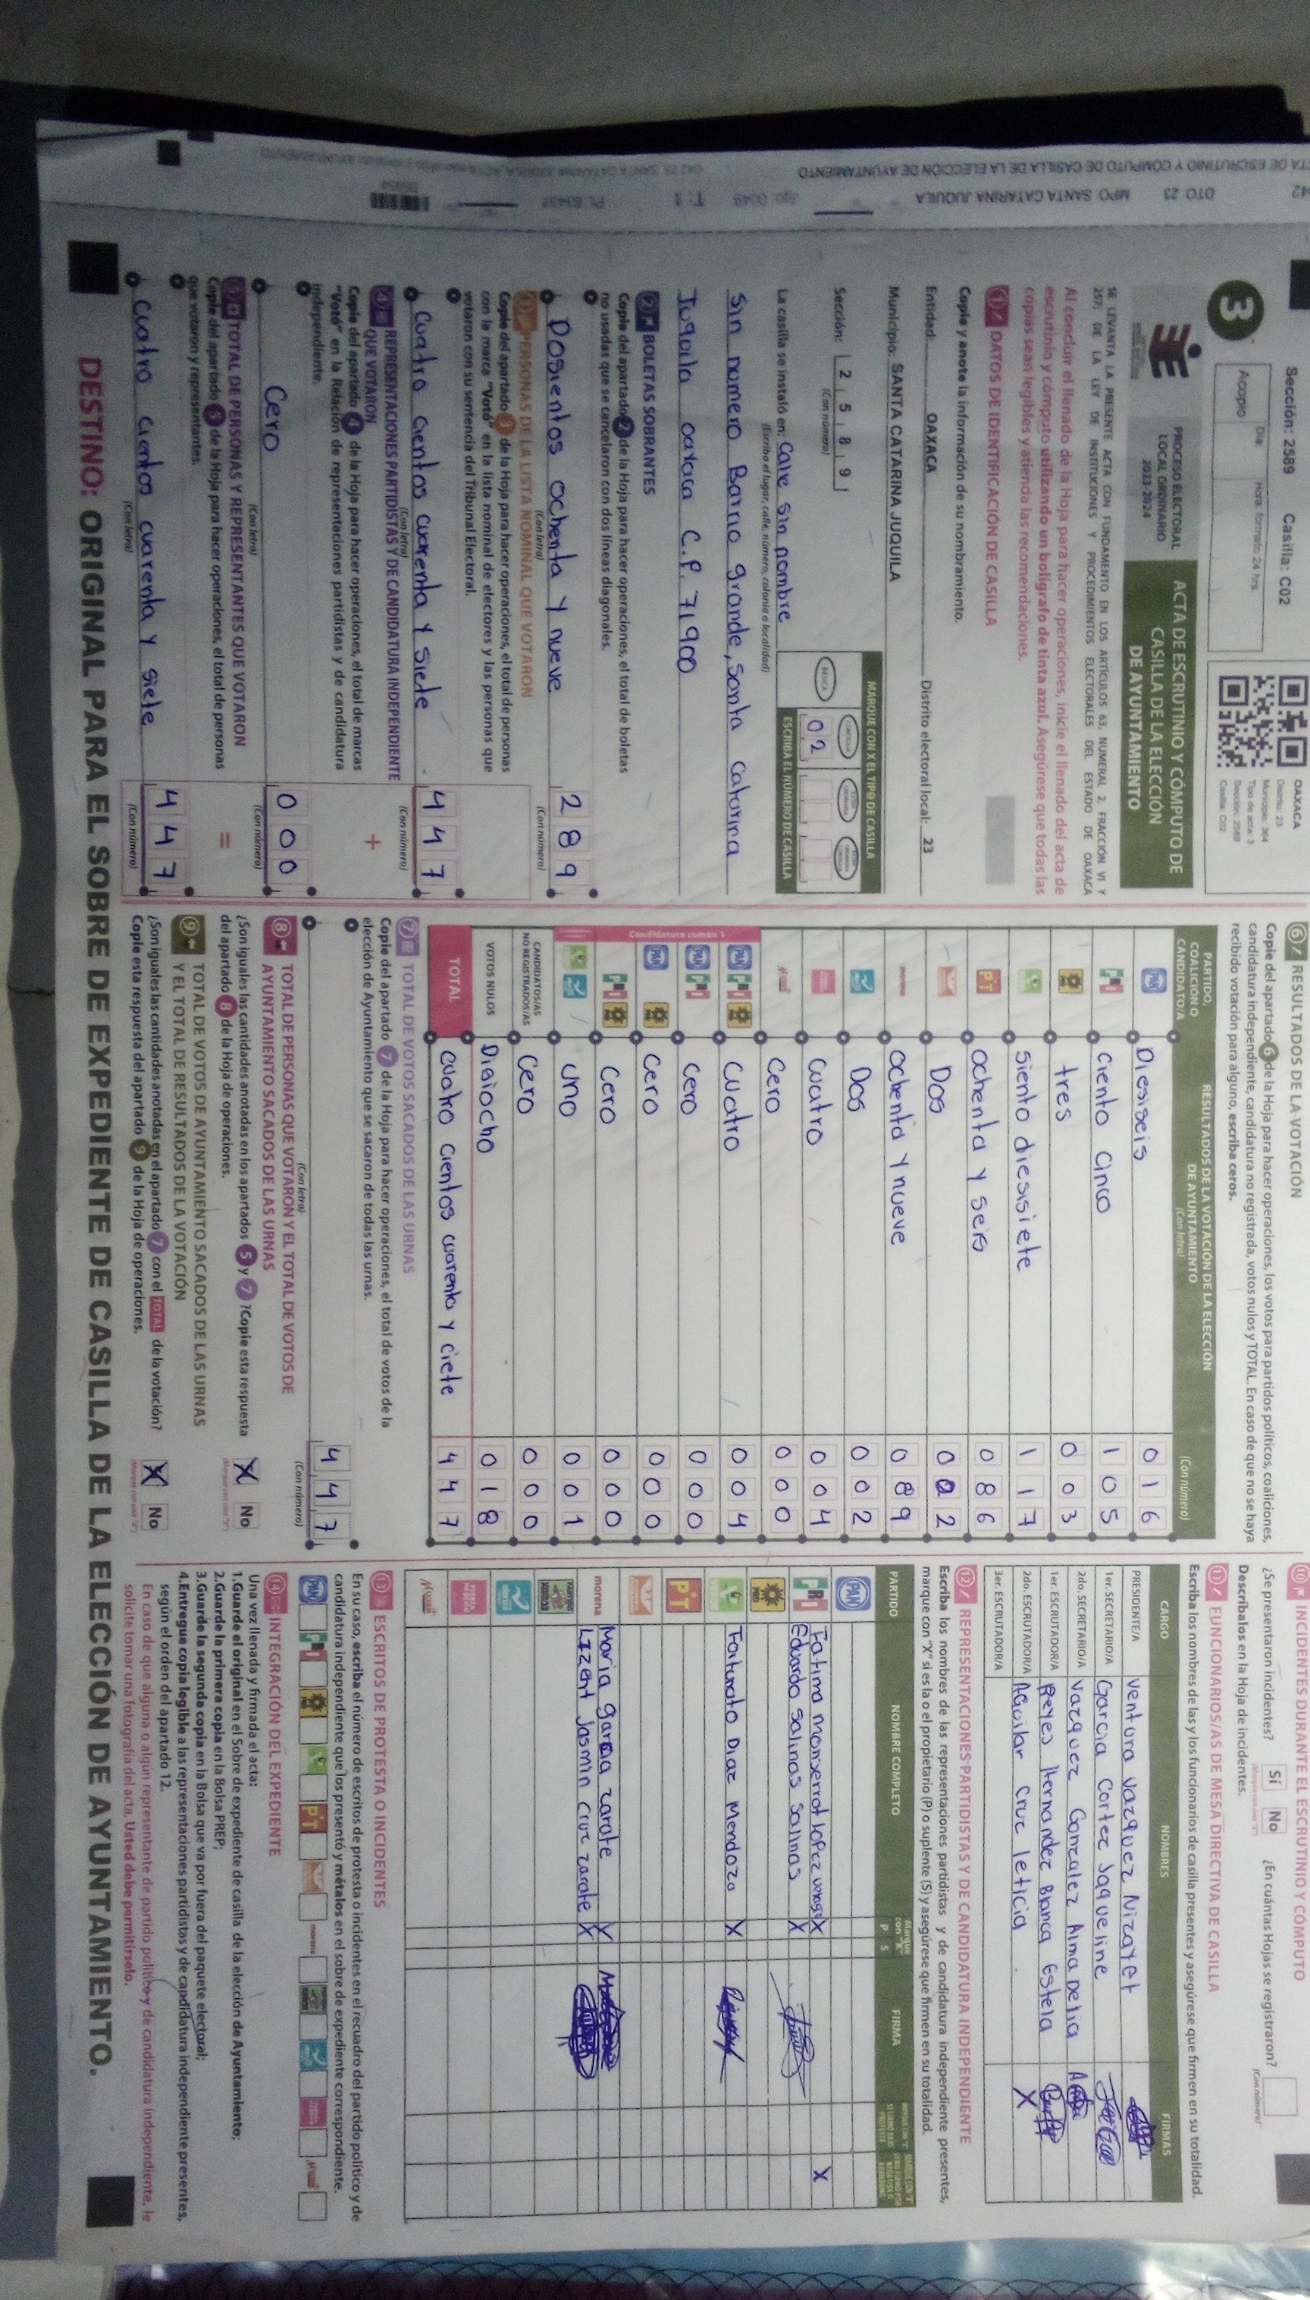 TA DE ESCRUTINIO Y CÓMPUTO DE CASILLA DE LA ELECCIÓN DE AYUNTAMIENTO
42 DTO. 23 MPO SANTA CATARINA JUQUILA
Sección: 2589 Casilla: C02
3
Día: Hora: formato 24 hrs
Acopio
OAXACA
Distrito: 23
Municipio: 364
Tipo de acta: 3
Sección: 2589
Casilla: C02
PROCESO ELECTORAL
LOCAL ORDINARIO
2023-2024
ACTA DE ESCRUTINIO Y CÓMPUTO DE
CASILLA DE LA ELECCIÓN
DE AYUNTAMIENTO
SE LEVANTA LA PRESENTE ACTA CON FUNDAMENTO EN LOS ARTÍCULOS 63, NUMERAL 2, FRACCIÓN VI Y
257; DE LA LEY DE INSTITUCIONES Y PROCEDIMIENTOS ELECTORALES DEL ESTADO DE OAXACA
Al concluir el llenado de la Hoja para hacer operaciones, inicie el llenado del acta de
escrutinio y cómputo utilizando un bolígrafo de tinta azul. Asegúrese que todas las
copias sean legibles y atienda las recomendaciones.
1 DATOS DE IDENTIFICACIÓN DE CASILLA
Copie y anote la información de su nombramiento.
Entidad: OAXACA Distrito electoral local: 23
Municipio: SANTA CATARINA JUQUILA
Sección: 2 5 8 9
(Con número)
MARQUE CON X EL TIPO DE CASILLA
BÁSICA
ESCRIBA EL NÚMERO DE CASILLA
02
La casilla se instaló en: Calle Sin nombre
(Escriba el lugar, calle, número, colonia o localidad)
Sin numero Barrio grande, Santa Catarina
Juquila oaxaca C.P. 71900
2 BOLETAS SOBRANTES
Copie del apartado 2 de la Hoja para hacer operaciones, el total de boletas
no usadas que se cancelaron con dos líneas diagonales.
Dosientos ochenta y nueve 2 8 9
(Con letra) (Con número)
3 PERSONAS DE LA LISTA NOMINAL QUE VOTARON
Copie del apartado 3 de la Hoja para hacer operaciones, el total de personas
con la marca "Votó" en la lista nominal de electores y las personas que
votaron con su sentencia del Tribunal Electoral.
Cuatro cientos cuarenta y Siete 4 4 7
(Con letra) (Con número)
4 REPRESENTACIONES PARTIDISTAS Y DE CANDIDATURA INDEPENDIENTE
QUE VOTARON
+
Copie del apartado 4 de la Hoja para hacer operaciones, el total de marcas
"Votó" en la Relación de representaciones partidistas y de candidatura
independiente.
Cero 0 0 0
(Con letra) (Con número)
5 TOTAL DE PERSONAS Y REPRESENTANTES QUE VOTARON
=
Copie del apartado 5 de la Hoja para hacer operaciones, el total de personas
que votaron y representantes.
Cuatro cientos cuarenta y siete 4 4 7
(Con letra) (Con número)
6 RESULTADOS DE LA VOTACIÓN
Copie del apartado 6 de la Hoja para hacer operaciones, los votos para partidos políticos, coaliciones,
candidatura independiente, candidatura no registrada, votos nulos y TOTAL. En caso de que no se haya
recibido votación para alguno, escriba ceros.
PARTIDO, COALICIÓN O CANDIDATO/A
RESULTADOS DE LA VOTACIÓN DE LA ELECCIÓN DE AYUNTAMIENTO
(Con letra) (Con número)
PAN Diesiseis 0 1 6
PRI ciento cinco 1 0 5
PRD tres 0 0 3
siento diesisiete 1 1 7
PT ochenta y seis 0 8 6
Dos 0 0 2
morena ochenta y nueve 0 8 9
Dos 0 0 2
cuatro 0 0 4
Cero 0 0 0
Candidatura común 1
PAN PRI PRD cuatro 0 0 4
PAN PRI cero 0 0 0
PAN PRD cero 0 0 0
PRI PRD Cero 0 0 0
uno 0 0 1
CANDIDATOS/AS NO REGISTRADOS/AS Cero 0 0 0
VOTOS NULOS Diaiocho 0 1 8
TOTAL cuatro cientos cuarenta y ciete 4 4 7
7 TOTAL DE VOTOS SACADOS DE LAS URNAS
Copie del apartado 7 de la Hoja para hacer operaciones, el total de votos de la
elección de Ayuntamiento que se sacaron de todas las urnas.
4 4 7
(Con letra) (Con número)
8 TOTAL DE PERSONAS QUE VOTARON Y EL TOTAL DE VOTOS DE
AYUNTAMIENTO SACADOS DE LAS URNAS
¿Son iguales las cantidades anotadas en los apartados 5 y 7? Copie esta respuesta
del apartado 8 de la Hoja de operaciones.
X No
9 TOTAL DE VOTOS DE AYUNTAMIENTO SACADOS DE LAS URNAS
Y EL TOTAL DE RESULTADOS DE LA VOTACIÓN
¿Son iguales las cantidades anotadas en el apartado 7 con el TOTAL de la votación?
Copie esta respuesta del apartado 9 de la Hoja de operaciones.
X No
10 INCIDENTES DURANTE EL ESCRUTINIO Y CÓMPUTO
¿Se presentaron incidentes? Sí No ¿En cuántas Hojas se registraron?
(Con número)
Descríbalos en la Hoja de incidentes.
11 FUNCIONARIOS/AS DE MESA DIRECTIVA DE CASILLA
Escriba los nombres de las y los funcionarios de casilla presentes y asegúrese que firmen en su totalidad.
CARGO NOMBRES FIRMAS
PRESIDENTE/A Ventura Vazquez Nizayet
1er. SECRETARIO/A Garcia Cortez Jaqueline
2do. SECRETARIO/A Vazquez Gonzalez Alma Delia
1er. ESCRUTADOR/A Reyes Hernandez Blanca Estela
2do. ESCRUTADOR/A Aguilar Cruz leticia X
3er. ESCRUTADOR/A
12 REPRESENTACIONES PARTIDISTAS Y DE CANDIDATURA INDEPENDIENTE
Escriba los nombres de las representaciones partidistas y de candidatura independiente presentes,
marque con "X" si es la o el propietario (P) o suplente (S) y asegúrese que firmen en su totalidad.
PARTIDO NOMBRE COMPLETO Marque con "X" P S FIRMA
PAN
PRI Fatima monserrat lopez X X
Eduardo Salinas Salinas X
PRD
Fortunato Diaz Mendoza X
PT
morena Maria Garcia Zarate X
Lizeht Jasmin Cruz Zarate X
13 ESCRITOS DE PROTESTA O INCIDENTES
En su caso, escriba el número de escritos de protesta o incidentes en el recuadro del partido político y de
candidatura independiente que los presentó y métalos en el sobre de expediente correspondiente.
PAN PRI PRD PT morena
14 INTEGRACIÓN DEL EXPEDIENTE
Una vez llenada y firmada el acta:
1.Guarde el original en el Sobre de expediente de casilla de la elección de Ayuntamiento;
2.Guarde la primera copia en la Bolsa PREP;
3.Guarde la segunda copia en la Bolsa que va por fuera del paquete electoral;
4.Entregue copia legible a las representaciones partidistas y de candidatura independiente presentes,
según el orden del apartado 12.
En caso de que alguna o algún representante de partido político y de candidatura independiente, le
solicite tomar una fotografía del acta, Usted debe permitírselo.
DESTINO: ORIGINAL PARA EL SOBRE DE EXPEDIENTE DE CASILLA DE LA ELECCIÓN DE AYUNTAMIENTO.